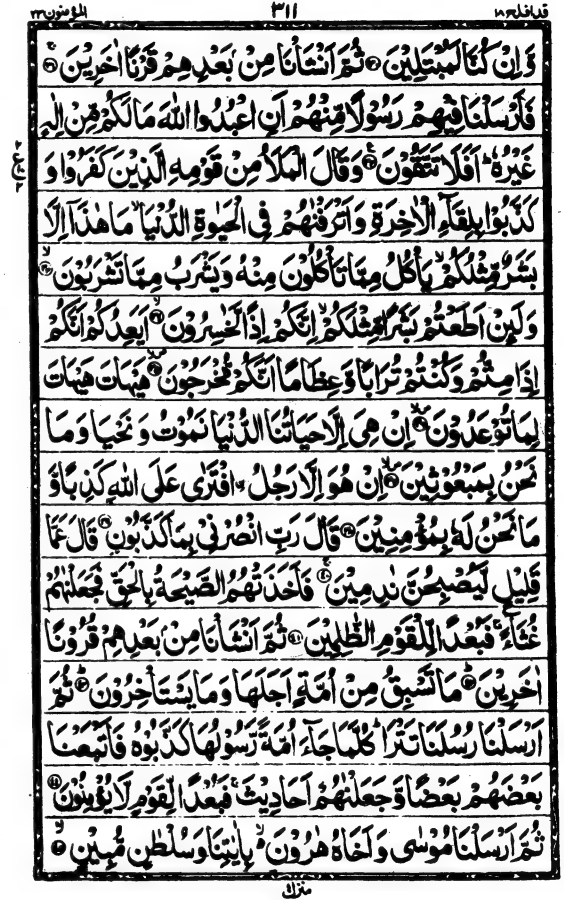 قد افلح ۱۸ ۳۱۱ المؤمنون ۲۳
وَّاِنْ كُنَّا لَمُبْتَلِيْنَ ۳۰ ثُمَّ اَنْشَاْنَا مِنْۢ بَعْدِهِمْ قَرْنًا اٰخَرِيْنَ ۳۱
فَاَرْسَلْنَا فِيْهِمْ رَسُوْلًا مِّنْهُمْ اَنِ اعْبُدُوا اللّٰهَ مَا لَكُمْ مِّنْ اِلٰهٍ
غَيْرُهٗ ؕ اَفَلَا تَتَّقُوْنَ ۳۲ وَقَالَ الْمَلَاُ مِنْ قَوْمِهِ الَّذِيْنَ كَفَرُوْا وَ
كَذَّبُوْا بِلِقَآءِ الْاٰخِرَةِ وَاَتْرَفْنٰهُمْ فِي الْحَيٰوةِ الدُّنْيَا ۙ مَا هٰذَاۤ اِلَّا
بَشَرٌ مِّثْلُكُمْ ۙ يَاْكُلُ مِمَّا تَاْكُلُوْنَ مِنْهُ وَيَشْرَبُ مِمَّا تَشْرَبُوْنَ ۳۳ ۙ
وَلَئِنْ اَطَعْتُمْ بَشَرًا مِّثْلَكُمْ ۙ اِنَّكُمْ اِذًا لَّخٰسِرُوْنَ ۳۴ ۙ اَيَعِدُكُمْ اَنَّكُمْ
اِذَا مِتُّمْ وَكُنْتُمْ تُرَابًا وَّعِظَامًا اَنَّكُمْ مُّخْرَجُوْنَ ۳۵ هَيْهَاتَ هَيْهَاتَ
لِمَا تُوْعَدُوْنَ ۳۶ اِنْ هِيَ اِلَّا حَيَاتُنَا الدُّنْيَا نَمُوْتُ وَنَحْيَا وَمَا
نَحْنُ بِمَبْعُوْثِيْنَ ۳۷ اِنْ هُوَ اِلَّا رَجُلُ ۨافْتَرٰى عَلَى اللّٰهِ كَذِبًا وَّ
مَا نَحْنُ لَهٗ بِمُؤْمِنِيْنَ ۳۸ قَالَ رَبِّ انْصُرْنِيْ بِمَا كَذَّبُوْنِ ۳۹ قَالَ عَمَّا
قَلِيْلٍ لَّيُصْبِحُنَّ نٰدِمِيْنَ ۴۰ فَاَخَذَتْهُمُ الصَّيْحَةُ بِالْحَقِّ فَجَعَلْنٰهُمْ
غُثَآءً ۚ فَبُعْدًا لِّلْقَوْمِ الظّٰلِمِيْنَ ۴۱ ثُمَّ اَنْشَاْنَا مِنْۢ بَعْدِهِمْ قُرُوْنًا
اٰخَرِيْنَ ۴۲ مَا تَسْبِقُ مِنْ اُمَّةٍ اَجَلَهَا وَمَا يَسْتَاْخِرُوْنَ ۴۳ ثُمَّ
اَرْسَلْنَا رُسُلَنَا تَتْرَا ؕ كُلَّمَا جَآءَ اُمَّةً رَّسُوْلُهَا كَذَّبُوْهُ فَاَتْبَعْنَا
بَعْضَهُمْ بَعْضًا وَّجَعَلْنٰهُمْ اَحَادِيْثَ ۚ فَبُعْدًا لِّقَوْمٍ لَّا يُؤْمِنُوْنَ ۴۴
ثُمَّ اَرْسَلْنَا مُوْسٰى وَاَخَاهُ هٰرُوْنَ ۙ بِاٰيٰتِنَا وَسُلْطٰنٍ مُّبِيْنٍ ۴۵ ۙ
منزل